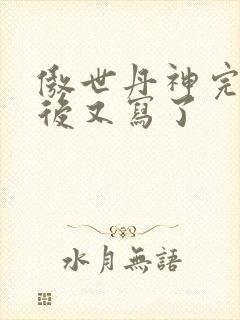 傲世丹神完
後又寫了
水月無語